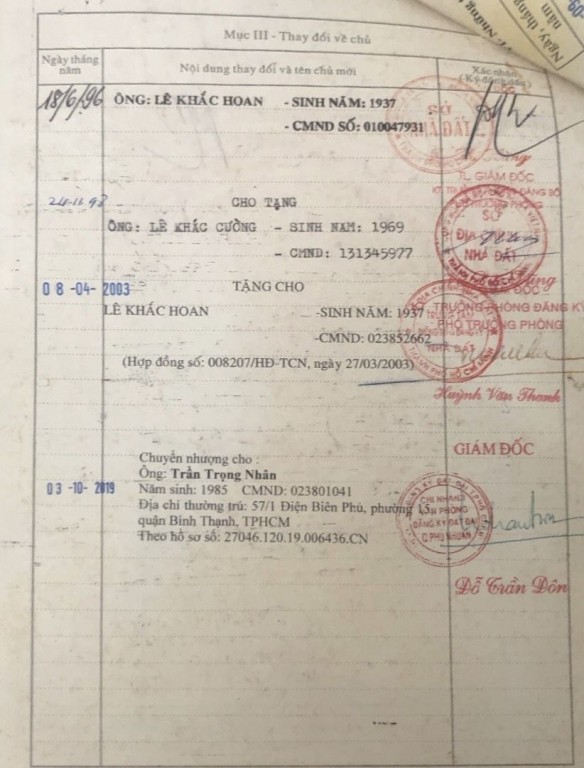 Mục III - Thay đổi về chủ
Ngày tháng năm
Nội dung thay đổi và tên chủ mới
Xác nhận
(Ký đóng dấu)
18/6/96
ÔNG: LÊ KHẮC HOAN - SINH NĂM: 1937
- CMND SỐ: 010047931
SỞ
NHÀ ĐẤT
TL. GIÁM ĐỐC
24-11-98
CHO TẶNG
ÔNG: LÊ KHẮC CƯỜNG - SINH NĂM: 1969
- CMND: 131345977
SỞ
ĐỊA CHÍNH
NHÀ ĐẤT
08 -04- 2003
TẶNG CHO
LÊ KHẮC HOAN
-SINH NĂM: 1937
-CMND: 023852662
(Hợp đồng số: 008207/HĐ-TCN, ngày 27/03/2003)
TRƯỞNG PHÒNG ĐĂNG KÝ
PHÓ TRƯỞNG PHÒNG
NHÀ ĐẤT
Huỳnh Văn Thanh
GIÁM ĐỐC
03 -10- 2019
Chuyển nhượng cho :
Ông: Trần Trọng Nhân
Năm sinh: 1985 CMND: 023801041
Địa chỉ thường trú: 57/1 Điện Biên Phủ, phường 15,
quận Bình Thạnh, TPHCM
Theo hồ sơ số: 27046.120.19.006436.CN
CHI NHÁNH
VĂN PHÒNG
ĐĂNG KÝ ĐẤT ĐAI
Q.PHÚ NHUẬN
Đỗ Trần Đôn